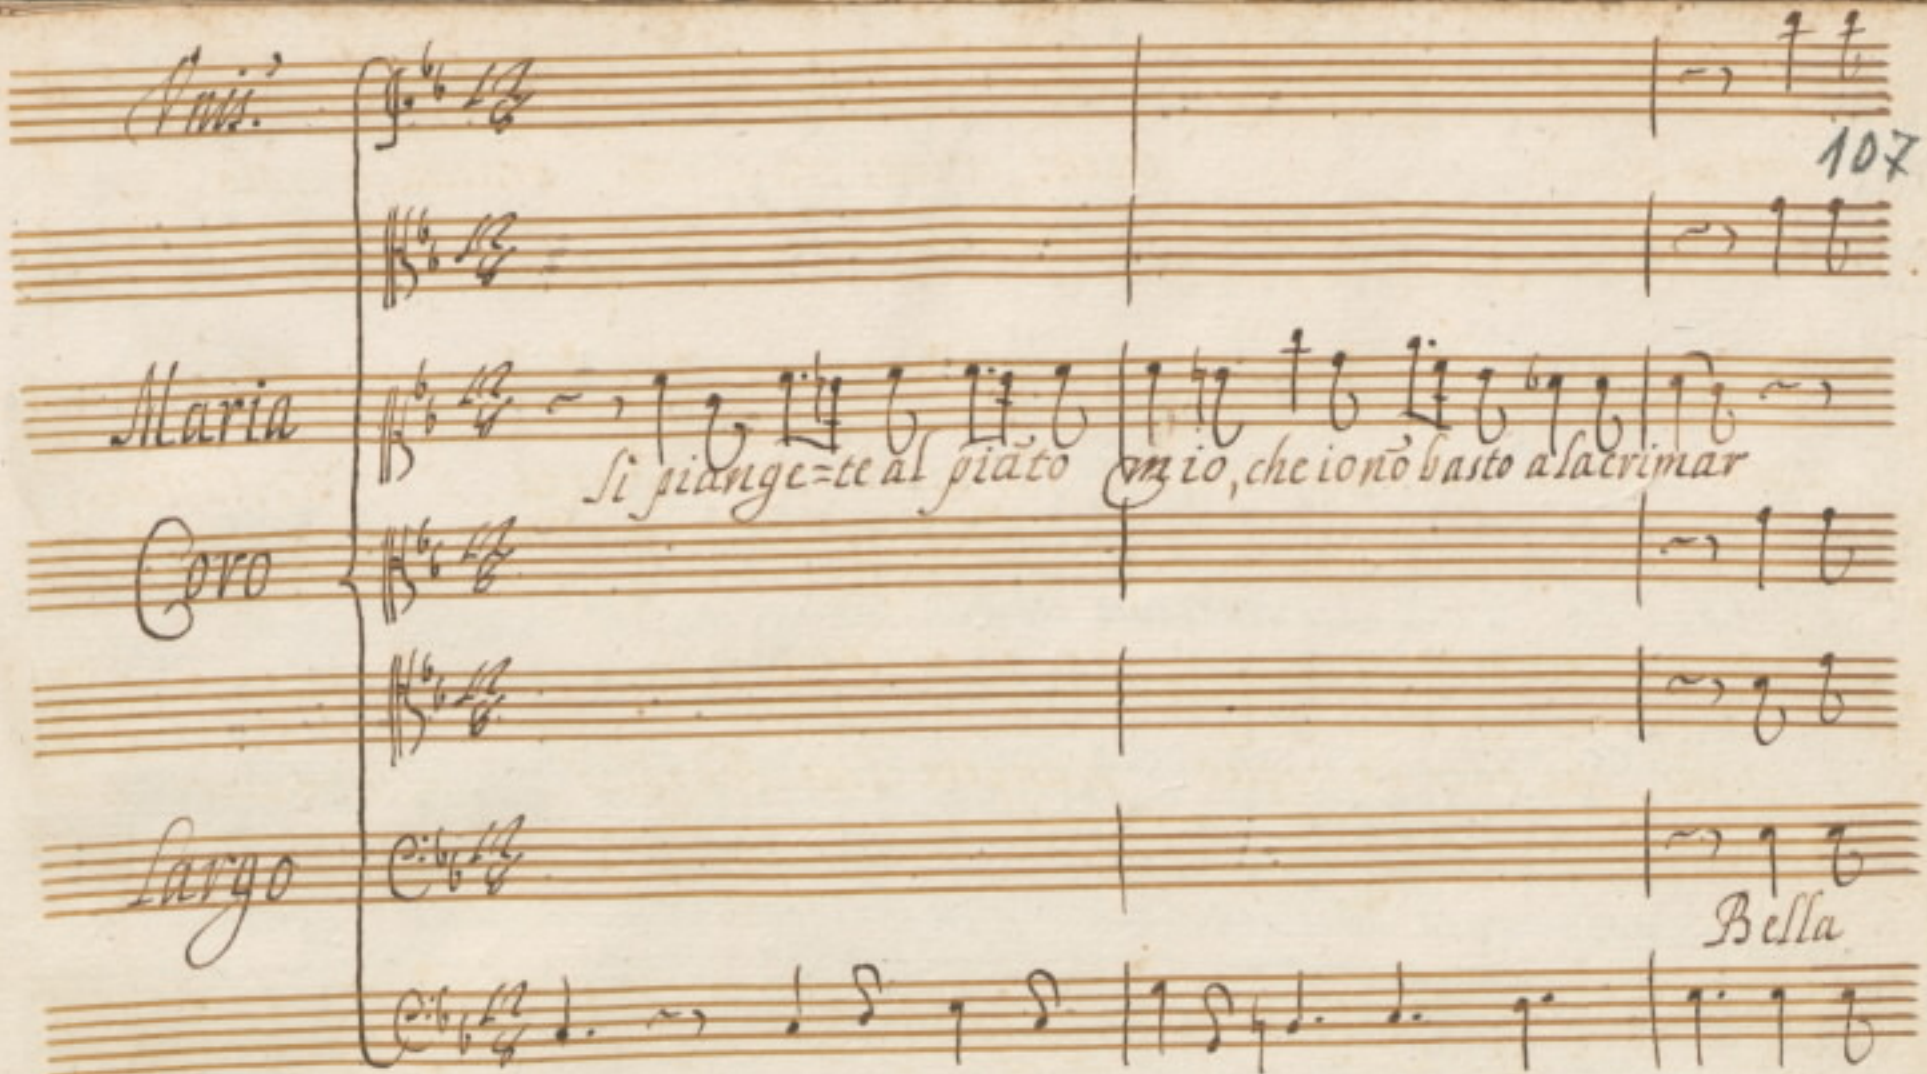 Vnis.
107
Maria
Si piange=te al piãto mio, che io nõ basto a lacrimar
Coro
Largo
Bella